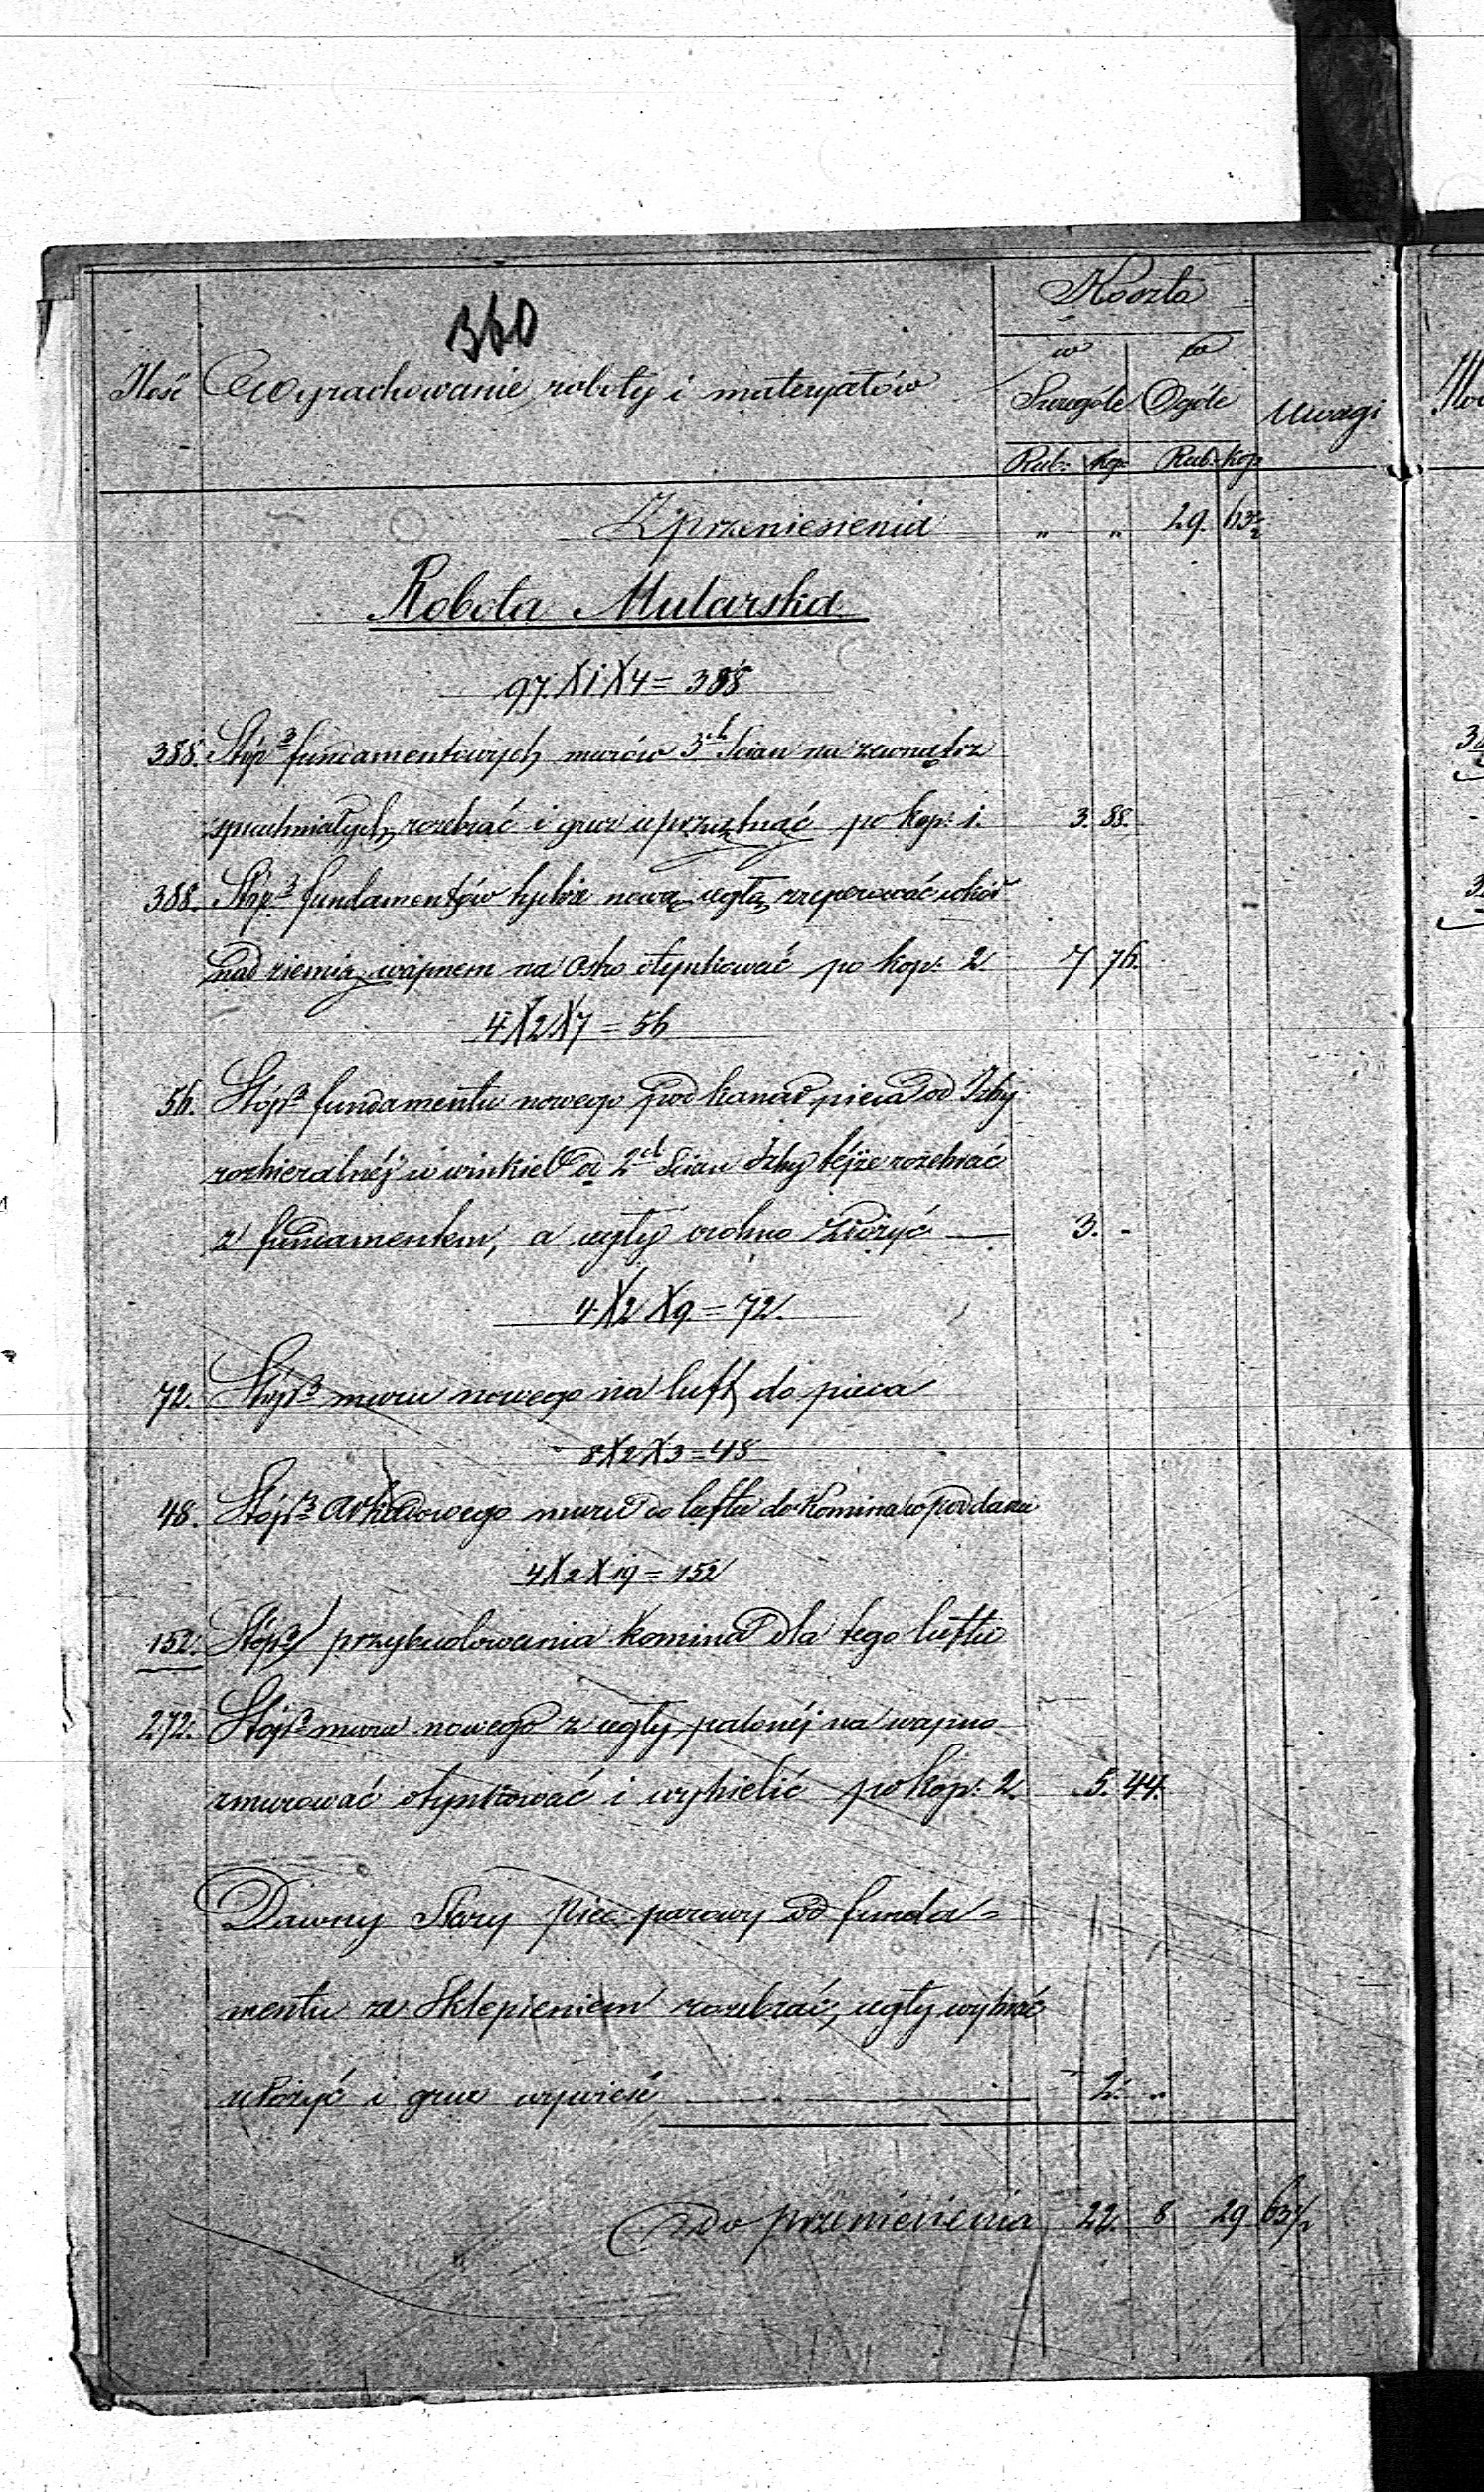 360
Koszta
Ilość Wyrachowanie roboty i materyałów w Szczególe w Ogóle Uwagi
Rub: kop: Rub: kop
Z przeniesienia „ „ 29. 63½
Robota Mularska
97. X 1 X 4 = 388
388. Stóp³ fundamentowych murów 3ch Scian na zewnątrz
spruchniałych, rozebrać i gruz uprzątnąć po kop: 1. 3. 88.
388. Stóp³ fundamentów tychże nową cegłą zreperować
nad ziemią wapnem na Ostro otynkować po kop: 2. 7 76.
4 X 2 X 7 = 56
56. Stóp³ fundamentu nowego pod kanał pieca od Izby
rozbieralnéj w winkiel a 2ch Scian Izby téjże rozebrać
z fundamentem, a cegły złożyć 3. -
4 X 2 X 9 = 72.
72. Stóp³ muru nowego na luft do pieca
8 X 2 X 3 = 48
48. Stóp³ Arkadowego muru do luftu do Komina w poddaszu
4 X 2 X 19 = 152
152. Stóp³ przybudowania Komina dla tego luftu
272. Stóp³ muru nowego z cegły palonéj na wapno
zmurować otynkować i wybielić po kop: 2. 5. 44.
Dawny Stary piec parowy od funda-
mentu ze Sklepieniem rozebrać, cegły wybrać
ułożyć i gruz wywieść 2. „
Do przeniesienia 22. 8 29 63½